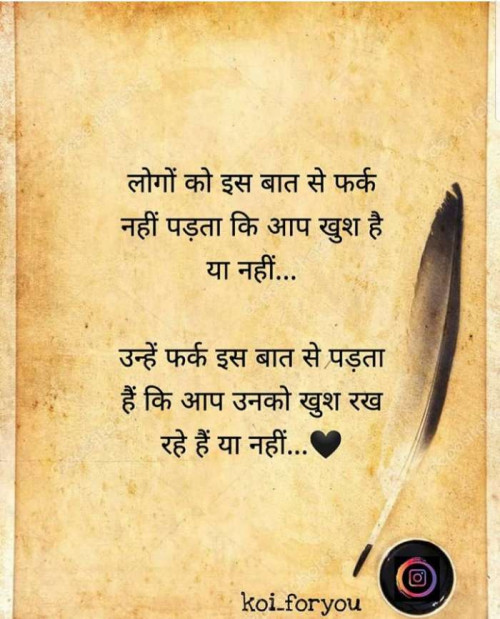 लोगों को इस बात से फर्क
नहीं पड़ता कि आप खुश है
या नहीं...
उन्हें फर्क इस बात से पड़ता
हैं कि आप उनको खुश रख
रहे हैं या नहीं...🖤
koi_foryou